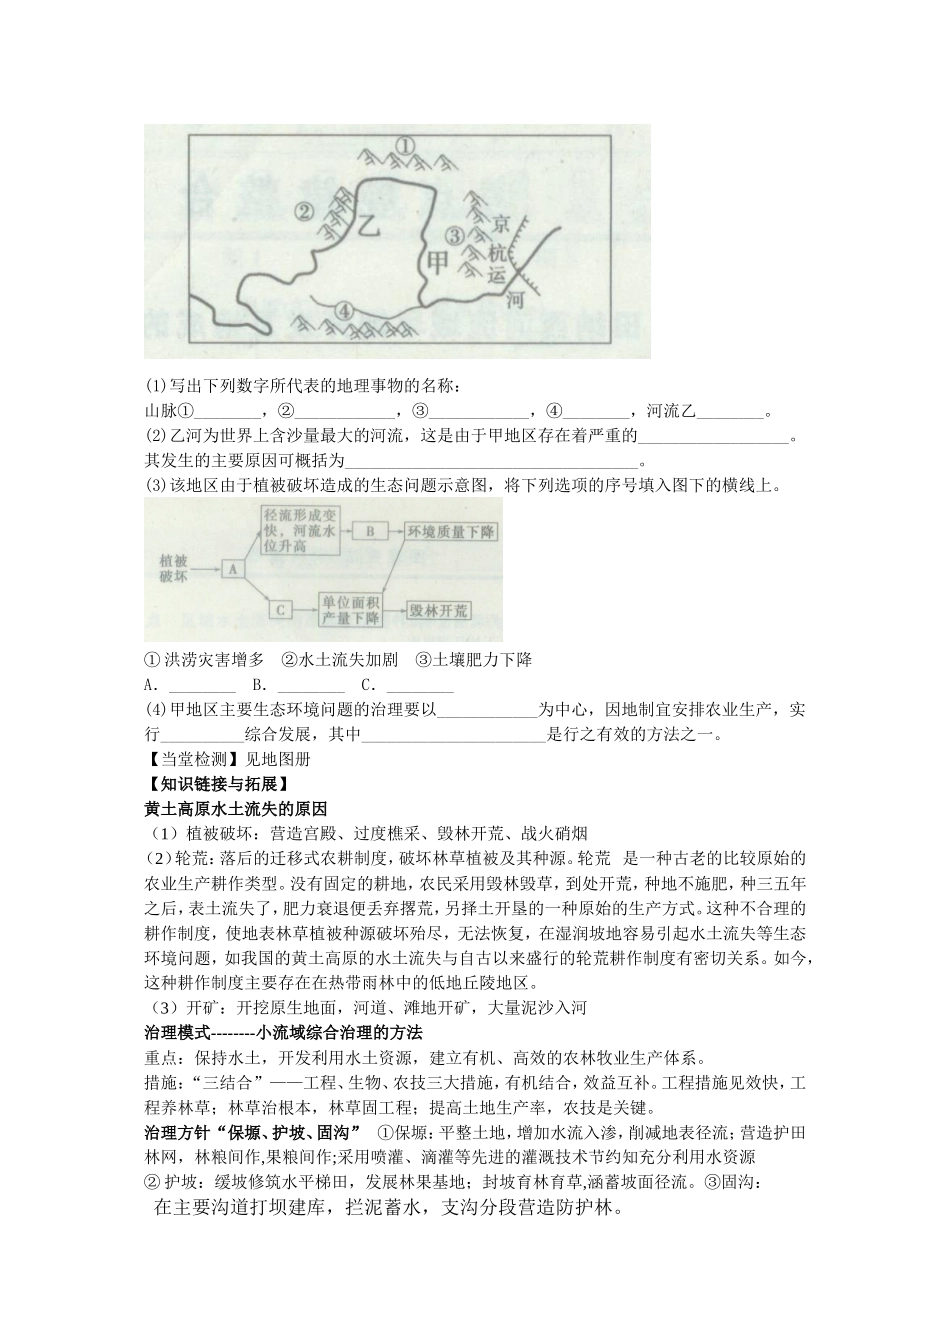 ①
②
乙
③
京
杭
运
河
甲
④
(1)写出下列数字所代表的地理事物的名称：
山脉①________，②____________，③____________，④________，河流乙________。
(2)乙河为世界上含沙量最大的河流，这是由于甲地区存在着严重的__________________。
其发生的主要原因可概括为___________________________________。
(3)该地区由于植被破坏造成的生态问题示意图，将下列选项的序号填入图下的横线上。
径流形成变
快，河流水
位升高
B
环境质量下降
植被
破坏
A
C
单位面积
产量下降
毁林开荒
① 洪涝灾害增多 ②水土流失加剧 ③土壤肥力下降
A．________ B．________ C．________
(4)甲地区主要生态环境问题的治理要以____________为中心，因地制宜安排农业生产，实
行__________综合发展，其中______________________是行之有效的方法之一。
【当堂检测】见地图册
【知识链接与拓展】
黄土高原水土流失的原因
（1）植被破坏：营造宫殿、过度樵采、毁林开荒、战火硝烟
（2）轮荒：落后的迁移式农耕制度，破坏林草植被及其种源。轮荒 是一种古老的比较原始的
农业生产耕作类型。没有固定的耕地，农民采用毁林毁草，到处开荒，种地不施肥，种三五年
之后，表土流失了，肥力衰退便丢弃撂荒，另择土开垦的一种原始的生产方式。这种不合理的
耕作制度，使地表林草植被种源破坏殆尽，无法恢复，在湿润坡地容易引起水土流失等生态
环境问题，如我国的黄土高原的水土流失与自古以来盛行的轮荒耕作制度有密切关系。如今，
这种耕作制度主要存在在热带雨林中的低地丘陵地区。
（3）开矿：开挖原生地面，河道、滩地开矿，大量泥沙入河
治理模式--------小流域综合治理的方法
重点：保持水土，开发利用水土资源，建立有机、高效的农林牧业生产体系。
措施：“三结合”——工程、生物、农技三大措施，有机结合，效益互补。工程措施见效快，工
程养林草；林草治根本，林草固工程；提高土地生产率，农技是关键。
治理方针“保塬、护坡、固沟” ①保塬：平整土地，增加水流入渗，削减地表径流；营造护田
林网，林粮间作,果粮间作;采用喷灌、滴灌等先进的灌溉技术节约知充分利用水资源
② 护坡：缓坡修筑水平梯田，发展林果基地；封坡育林育草,涵蓄坡面径流。③固沟：
在主要沟道打坝建库，拦泥蓄水，支沟分段营造防护林。